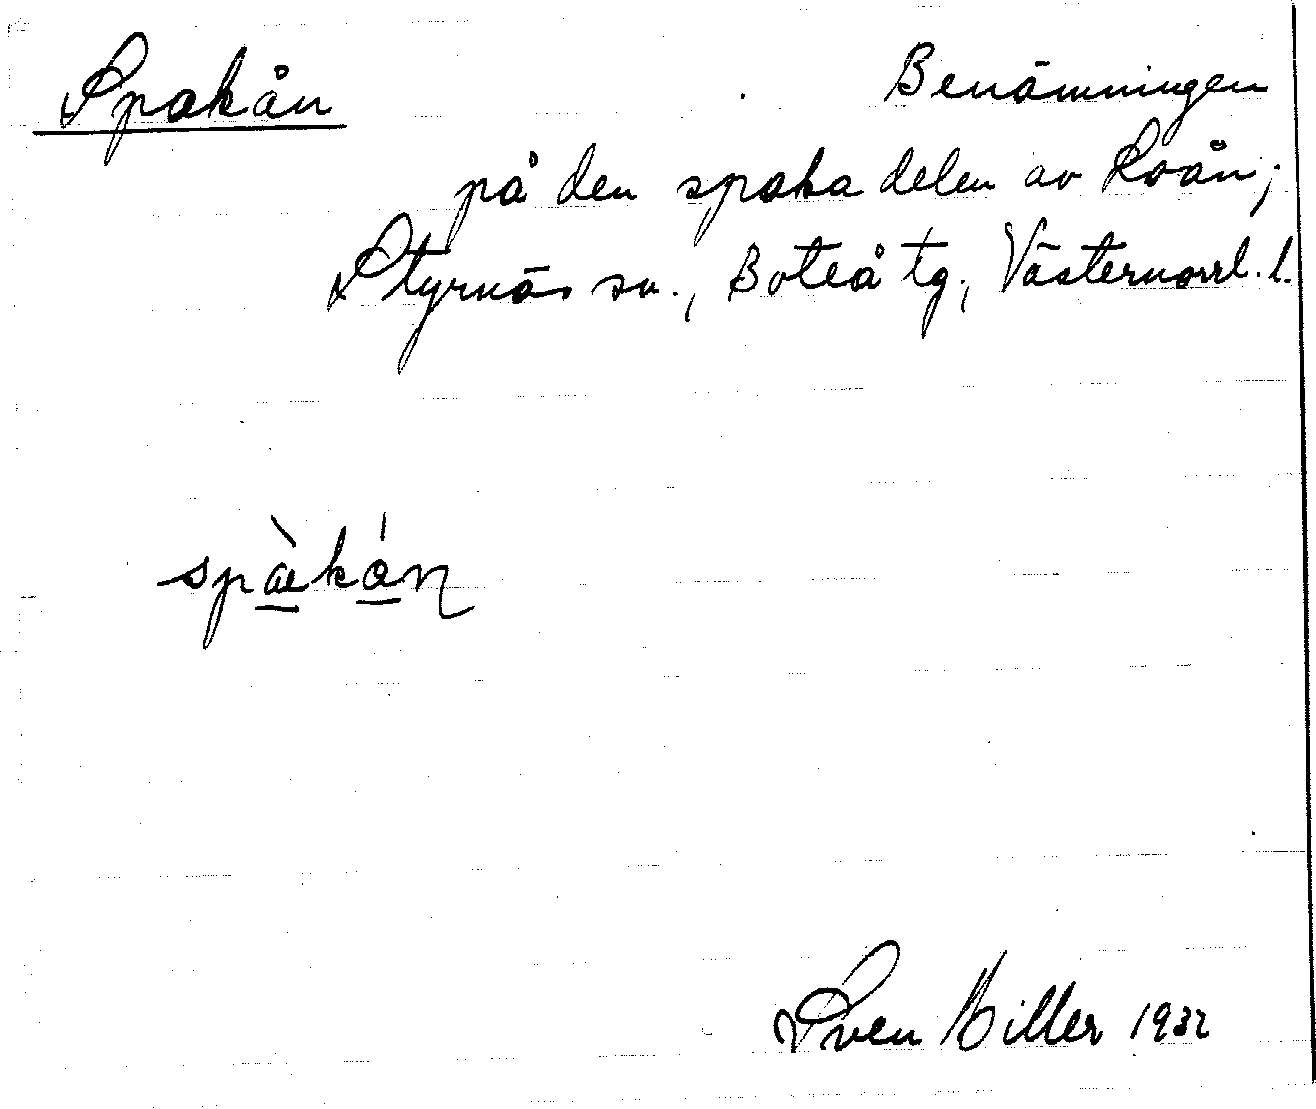 Spakån
Benämningen
på den spaka delen av Roån;
Styrnäs sn., Boteå tg., Västernorrl. l.
spàkán
Sven Hiller 1932